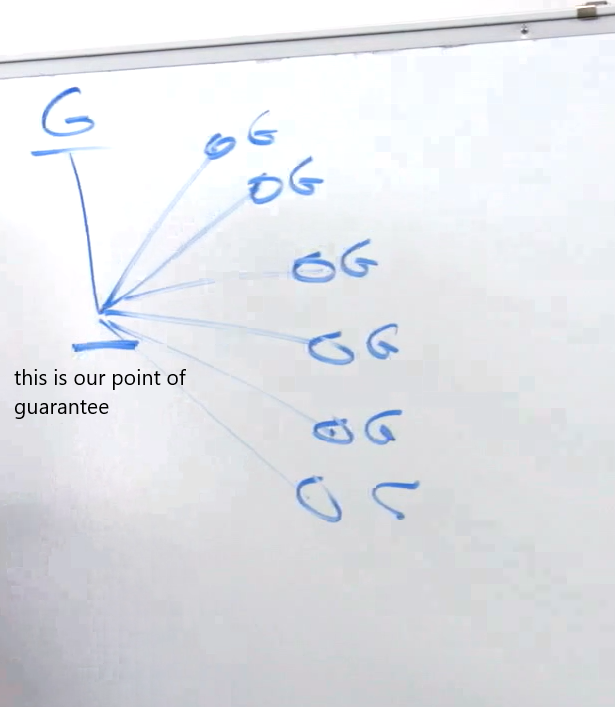 G
G
G
G
G
G
this is our point of
guarantee